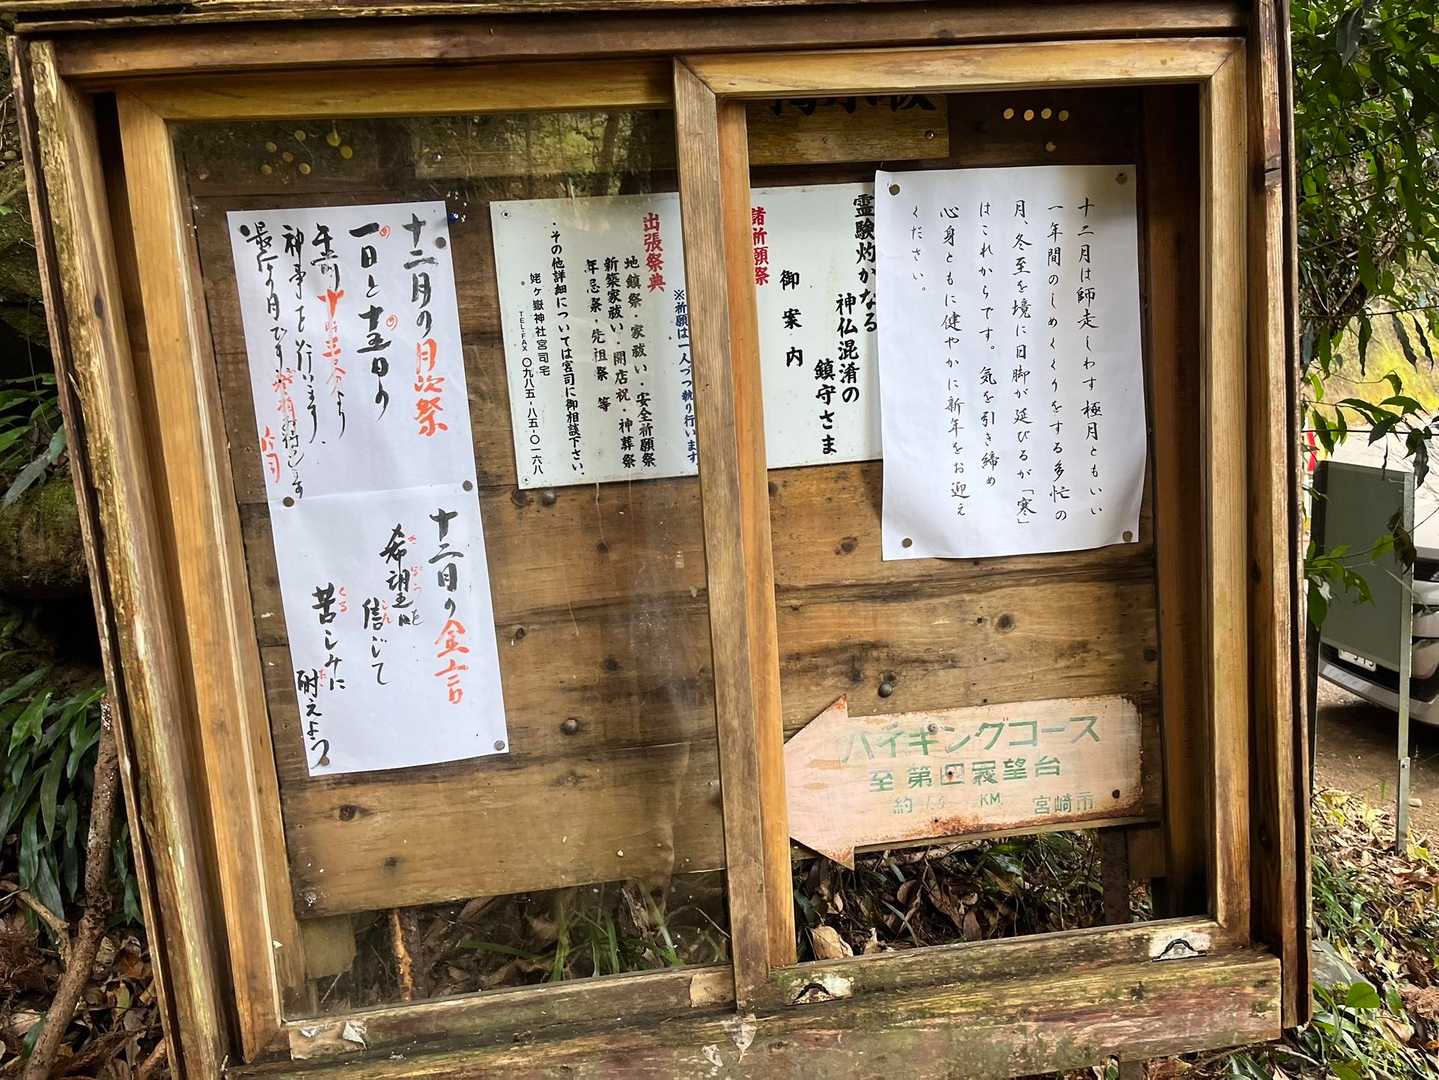 十二月は師走しわす極月ともいい
一年間のしめくくりをする多忙の
月、冬至を境に日脚が延びるが「寒」
はこれからです。気を引き締め
心身ともに健やかに新年をお迎え
ください。
霊験灼かなる
神仏混淆の
鎮守さま
御案内
諸祈願祭
※祈願は一人づつ執り行います
出張祭典
地鎮祭・家祓い・安全祈願祭
新築家祓い・開店祝・神葬祭
年忌祭・先祖祭 等
・その他詳細については宮司に御相談下さい。
姥ヶ嶽神社宮司宅
TEL.FAX 〇九八五-八五-〇一六八
十二月の月次祭
一日と十五日り
午前十時三十分より
神事を行います
最后の月です
十二月の金言
希望を
きぼう
信じて
しん
苦しみに
くる
耐えよう
た
ハイキングコース
至第四展望台
約 KM 宮崎市